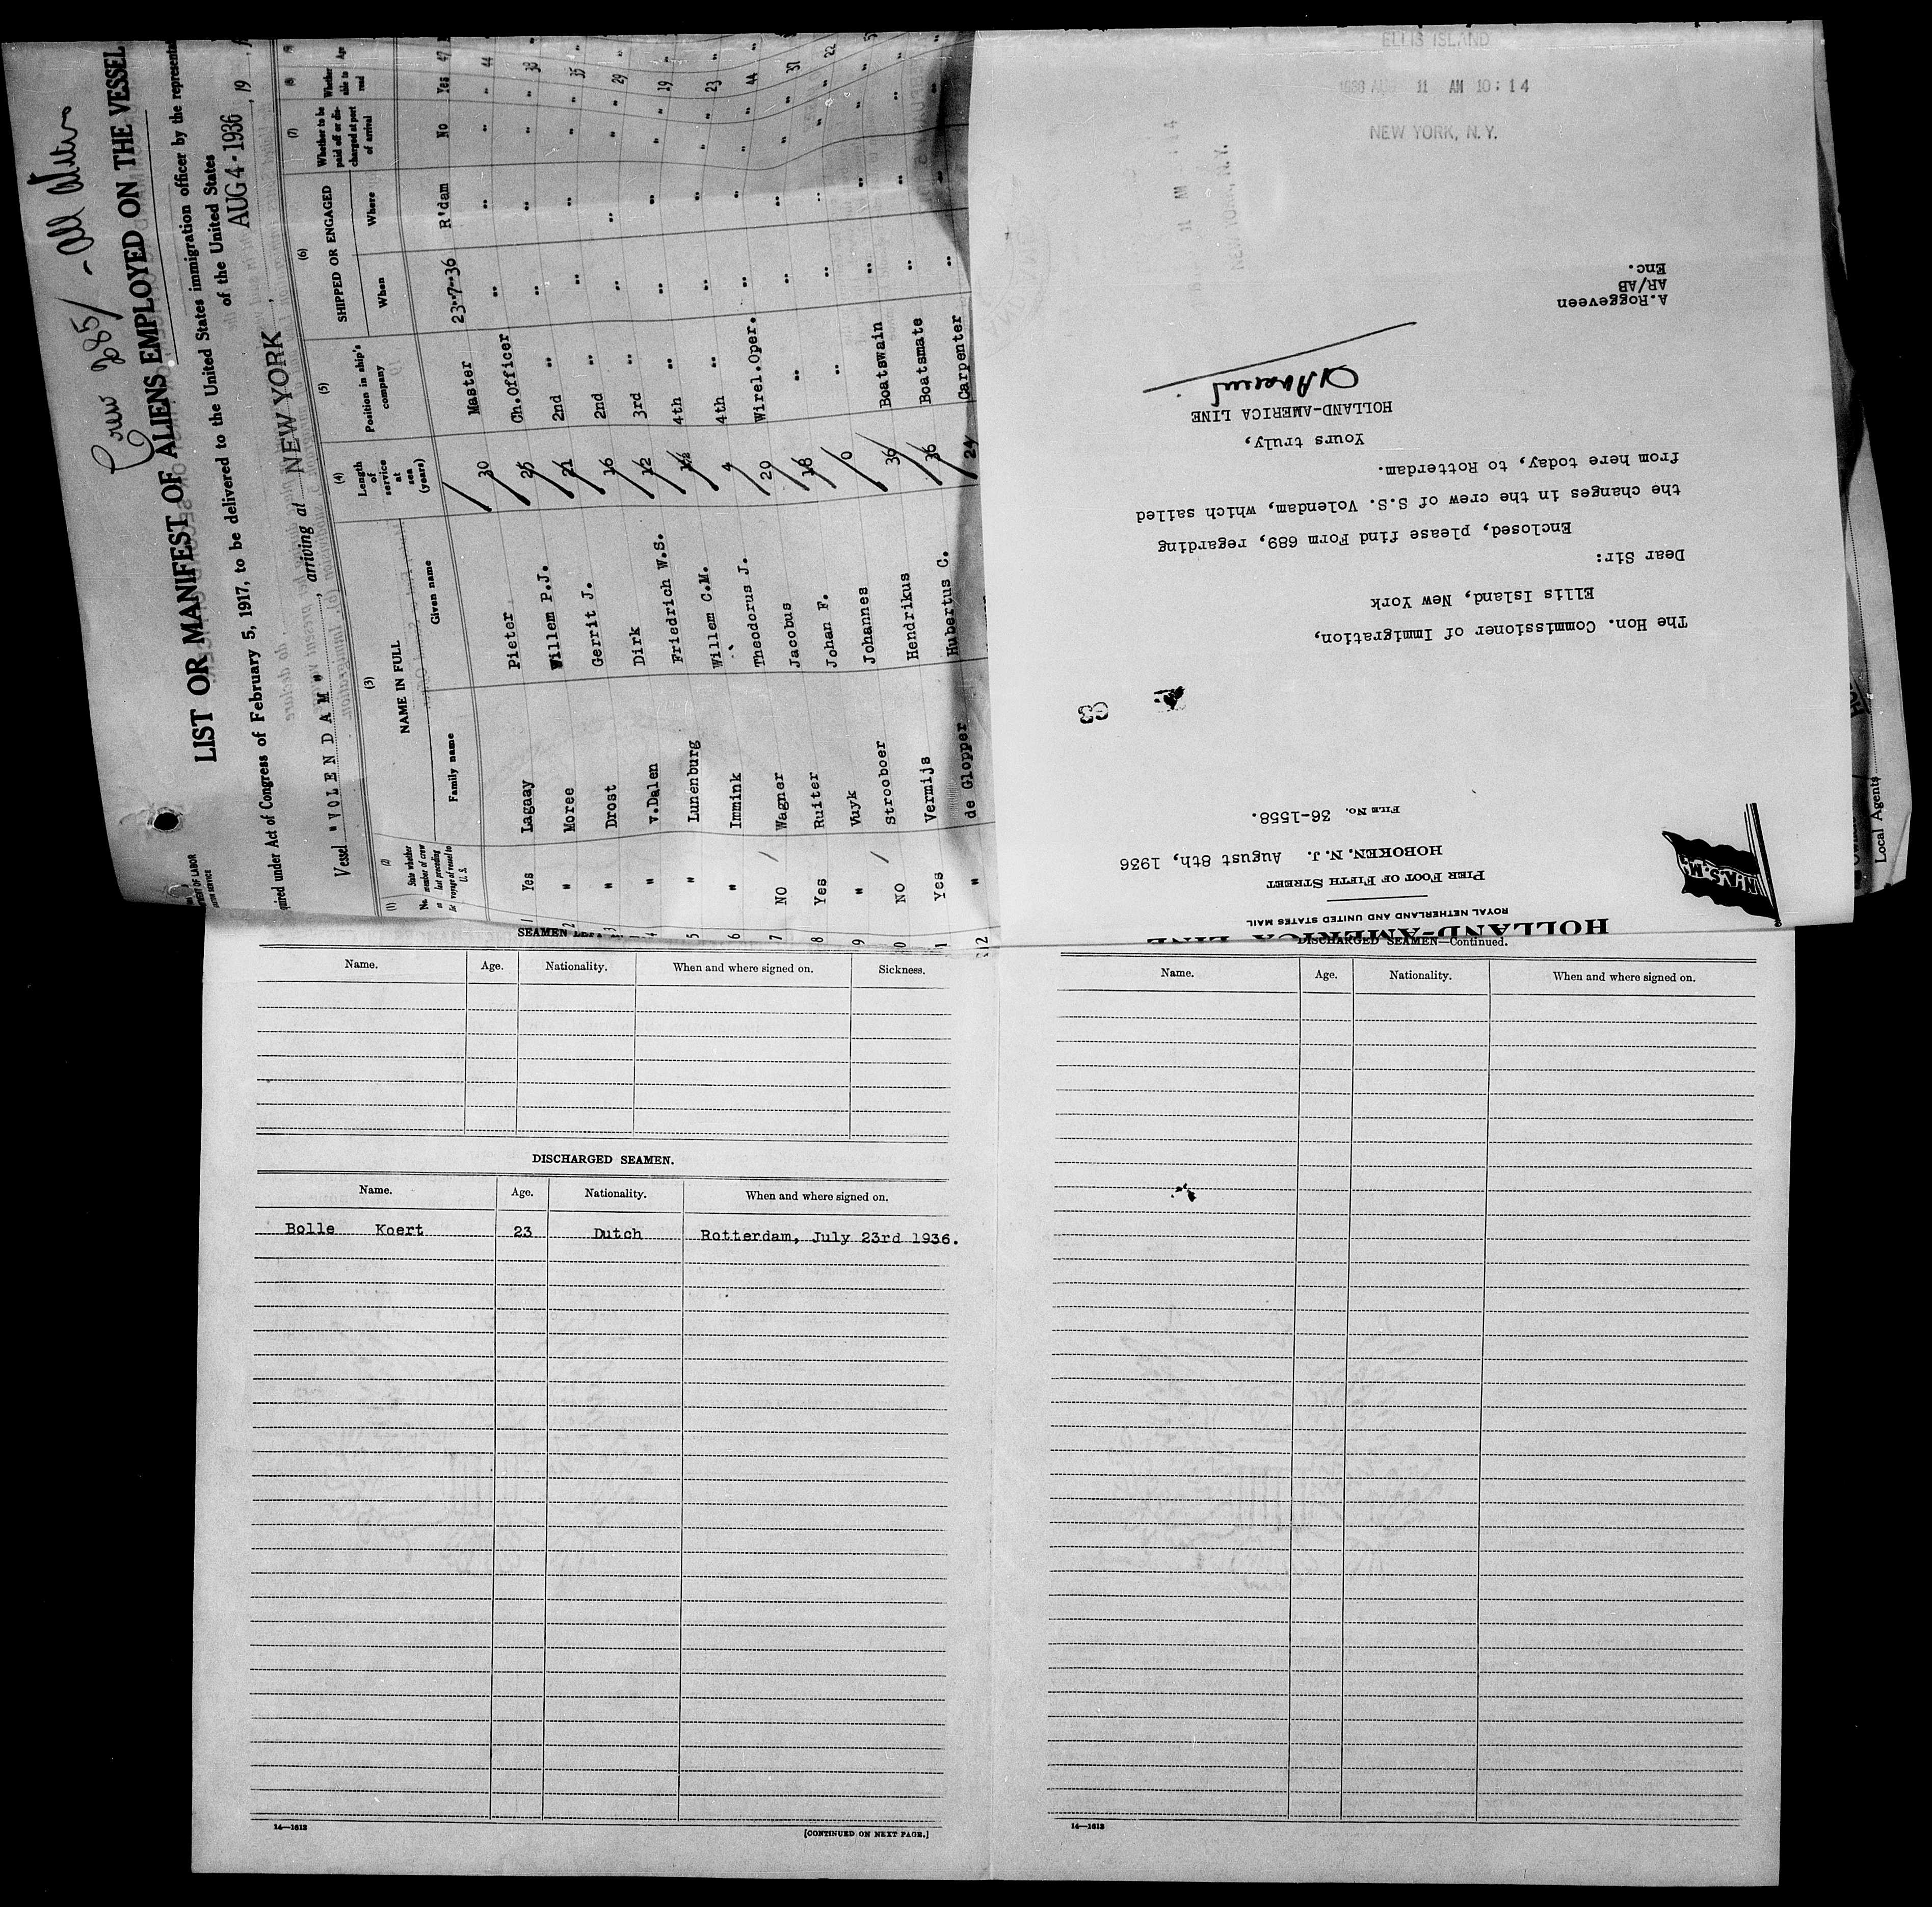 Crew 285/ - All Aliens
LIST OR MANIFEST OF ALIENS EMPLOYED ON THE VESSEL
quired under Act of Congress of February 5, 1917, to be delivered to the United States immigration officer by the representa
of the United States
Vessel "VOLENDAM", arriving at NEW YORK, AUG 4-1936, 19
(1) (2) (3) (4) (5) (6) (7)
No. State whether member of crew last preceding voyage of vessel to U. S.
NAME IN FULL
Family name Given name
Length of service at sea (years)
Position in ship's company
SHIPPED OR ENGAGED
When Where
Whether to be paid off or discharged at port of arrival
Whether able to read
Age
1 Yes Lagaay Pieter 30 Master 23-7-36 R'dam No Yes 47
2 " Moree Willem P.J. 25 Ch.Officer " " " " 44
3 " Drost Gerrit J. 21 2nd " " " " " 38
4 " v.Dalen Dirk 16 2nd " " " " " 35
5 " Lunenburg Friedrich W.S. 12 3rd " " " " " 29
6 " Immink Willem C.M. 1½ 4th " " " " " 19
7 NO / Wagner Theodorus J. 4 4th " " " " " 23
8 Yes Ruiter Jacobus 20 Wirel.Oper. " " " " 44
9 " Vuyk Johan F. 18 " " " " "
NO / Strooboer Johannes 0 " " " " " 22
Yes Vermijs Hendrikus 36 Boatswain " " " "
12 " de Glopper Hubertus C. 36 Boatsmate " " " "
24 Carpenter " "
ELLIS ISLAND
AUG 11 AM 10:14
NEW YORK, N.Y.
HOLLAND-AMERICA LINE
ROYAL NETHERLAND AND UNITED STATES MAIL
PIER FOOT OF FIFTH STREET
HOBOKEN, N. J. August 8th, 1936
FILE No. 36-1558.
N.A.S.M.
The Hon. Commissioner of Immigration,
Ellis Island, New York
Dear Sir:
Enclosed, please find Form 689, regarding
the changes in the crew of S.S. Volendam, which sailed
from here today, to Rotterdam.
Yours truly,
HOLLAND-AMERICA LINE
A.Roggeveen
AR/AB
Enc.
Local Agents
SEAMEN
Name. Age. Nationality. When and where signed on. Sickness.
DISCHARGED SEAMEN.
Name. Age. Nationality. When and where signed on.
Bolle Koert 23 Dutch Rotterdam, July 23rd 1936.
14—1613
[CONTINUED ON NEXT PAGE.]
DISCHARGED SEAMEN—Continued.
Name. Age. Nationality. When and where signed on.
14—1613